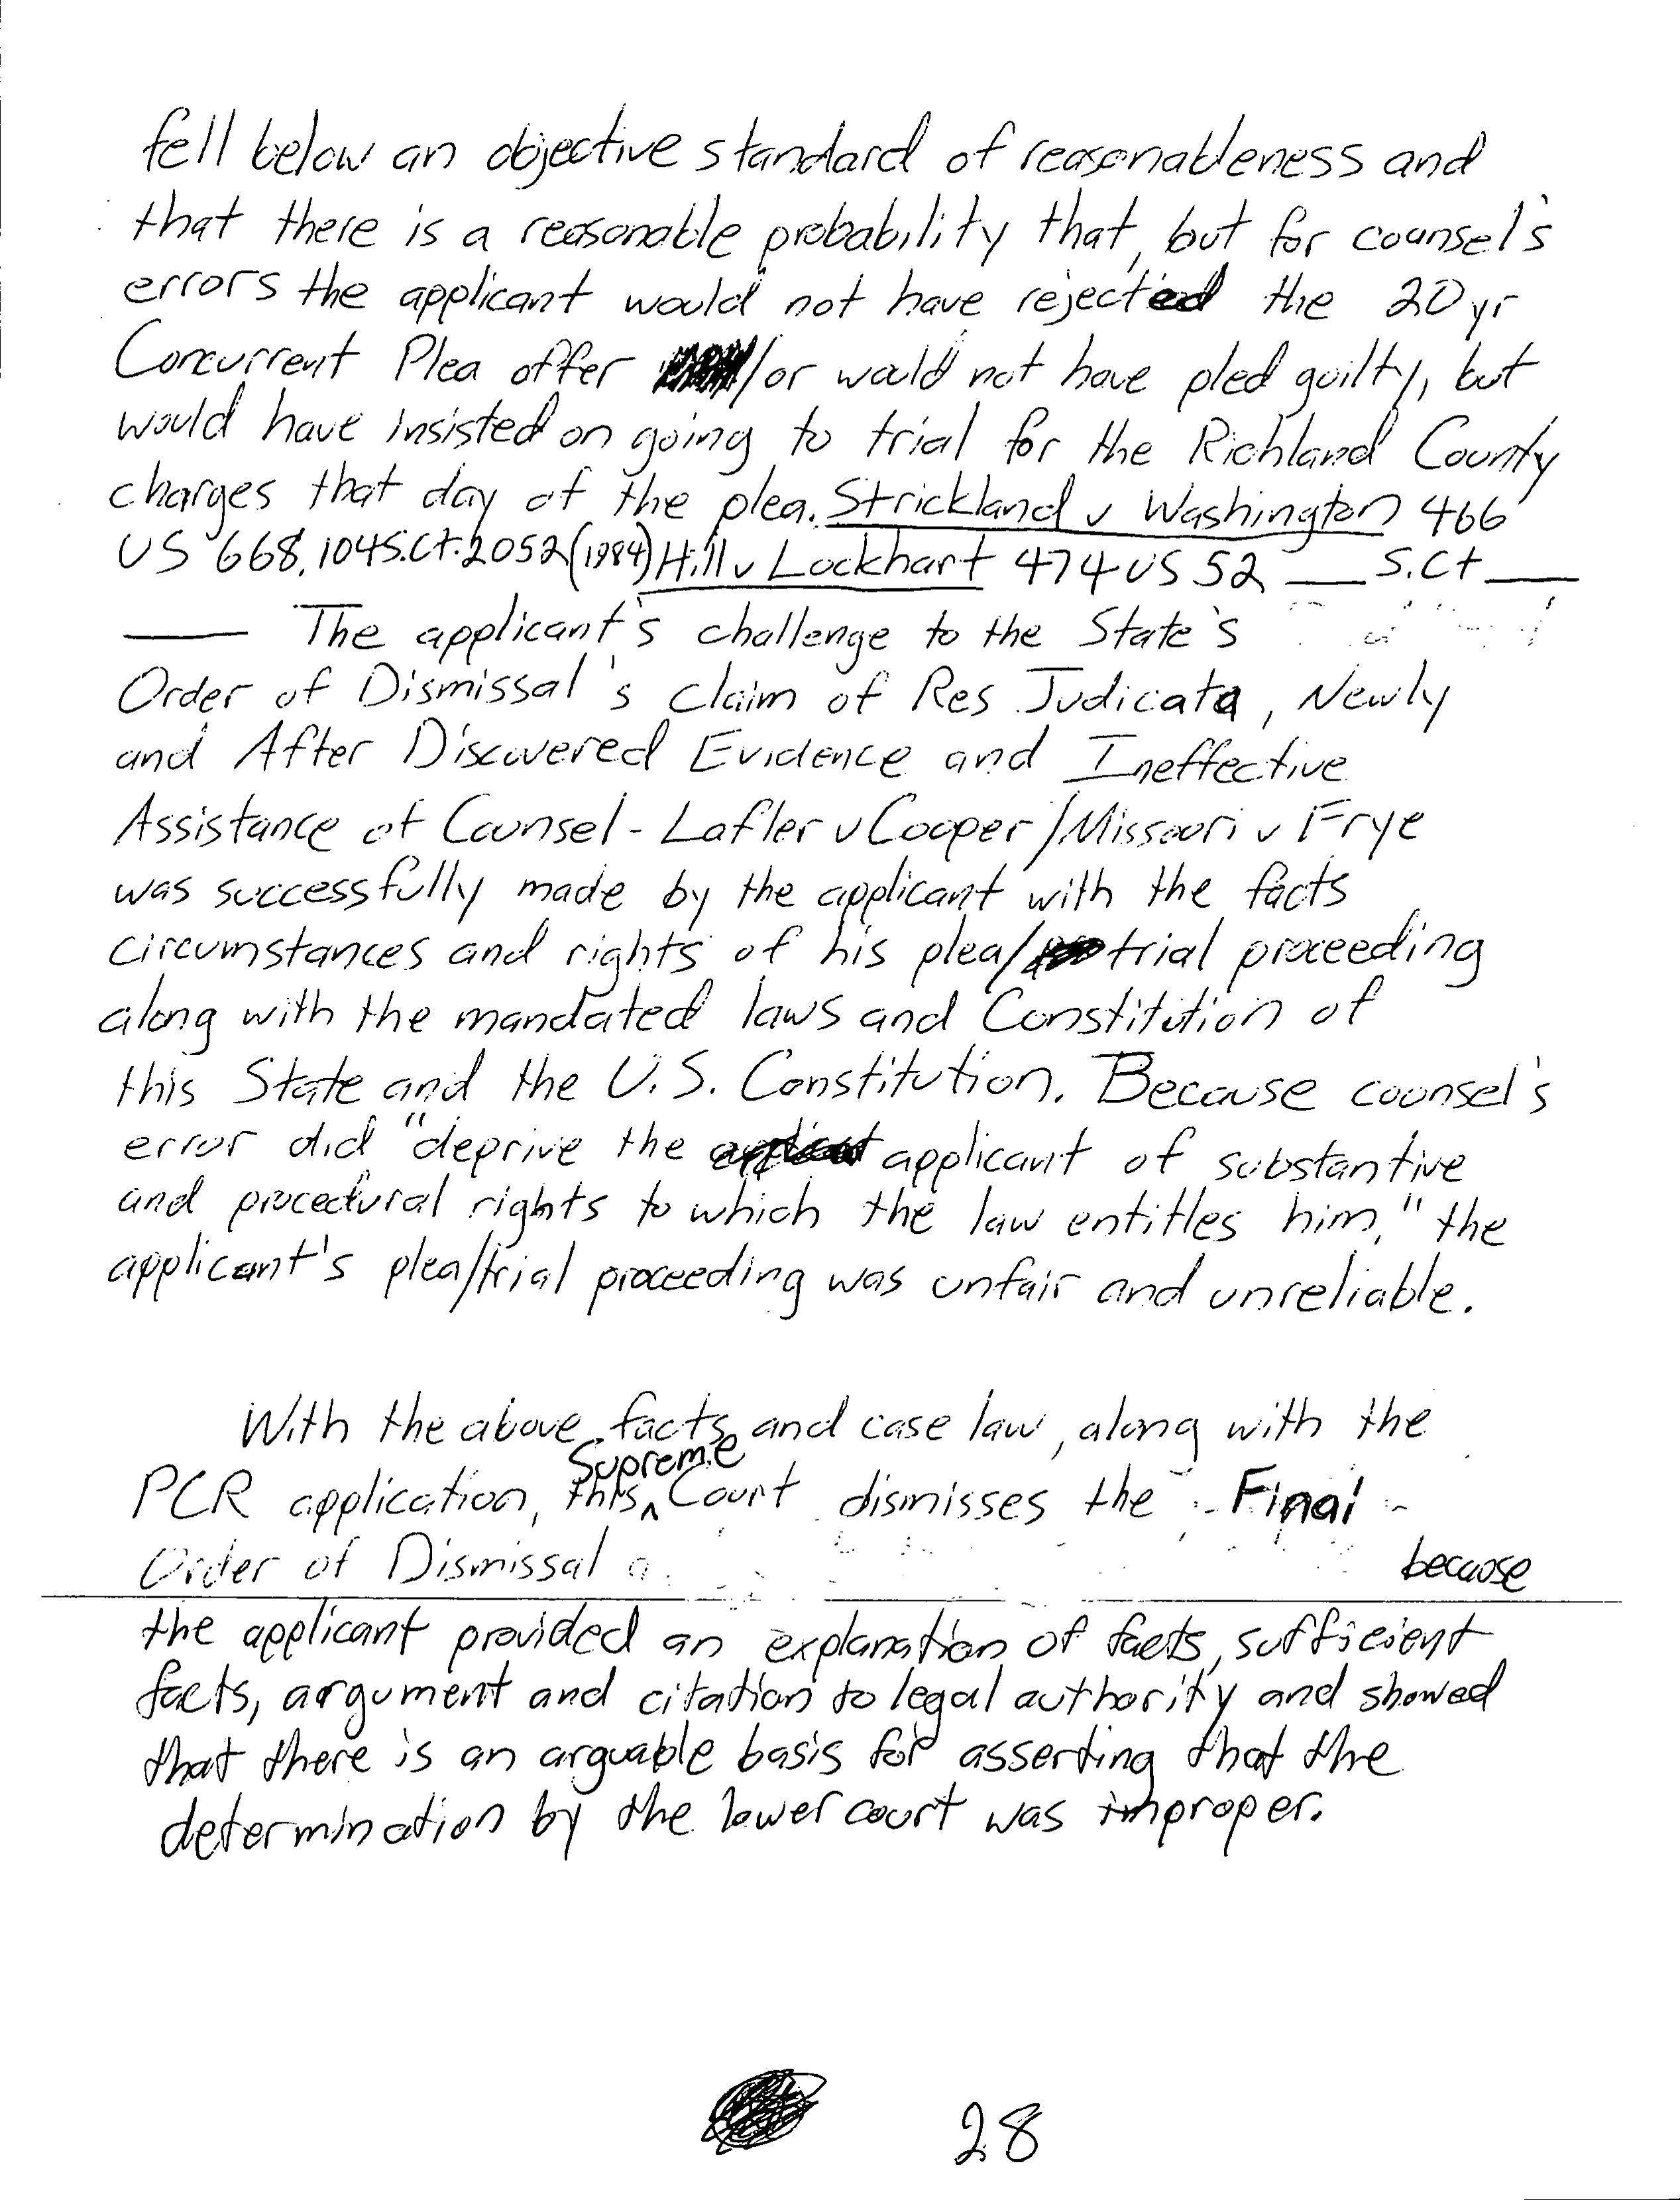 fell below an objective standard of reasonableness and
that there is a reasonable probability that, but for counsel's
errors the applicant would not have rejected the 20 yr
Concurrent Plea offer /or would not have pled guilty, but
would have insisted on going to trial for the Richland County
charges that day of the plea. Strickland v Washington 466
US 668, 104 S.Ct. 2052 (1984) Hill v Lockhart 474 US 52 ___ S.Ct ___
___ The applicant's challenge to the State's
Order of Dismissal's claim of Res Judicata, Newly
and After Discovered Evidence and Ineffective
Assistance of Counsel - Lafler v Cooper/Missouri v Frye
was successfully made by the applicant with the facts
circumstances and rights of his plea/trial proceeding
along with the mandated laws and Constitution of
this State and the U.S. Constitution. Because counsel's
error did "deprive the applicant of substantive
and procedural rights to which the law entitles him," the
applicant's plea/trial proceeding was unfair and unreliable.
With the above facts and case law, along with the
PCR application, this Supreme Court dismisses the Final
Order of Dismissal because
the applicant provided an explanation of facts, sufficient
facts, argument and citation to legal authority and showed
that there is an arguable basis for asserting that the
determination by the lower court was improper.
28